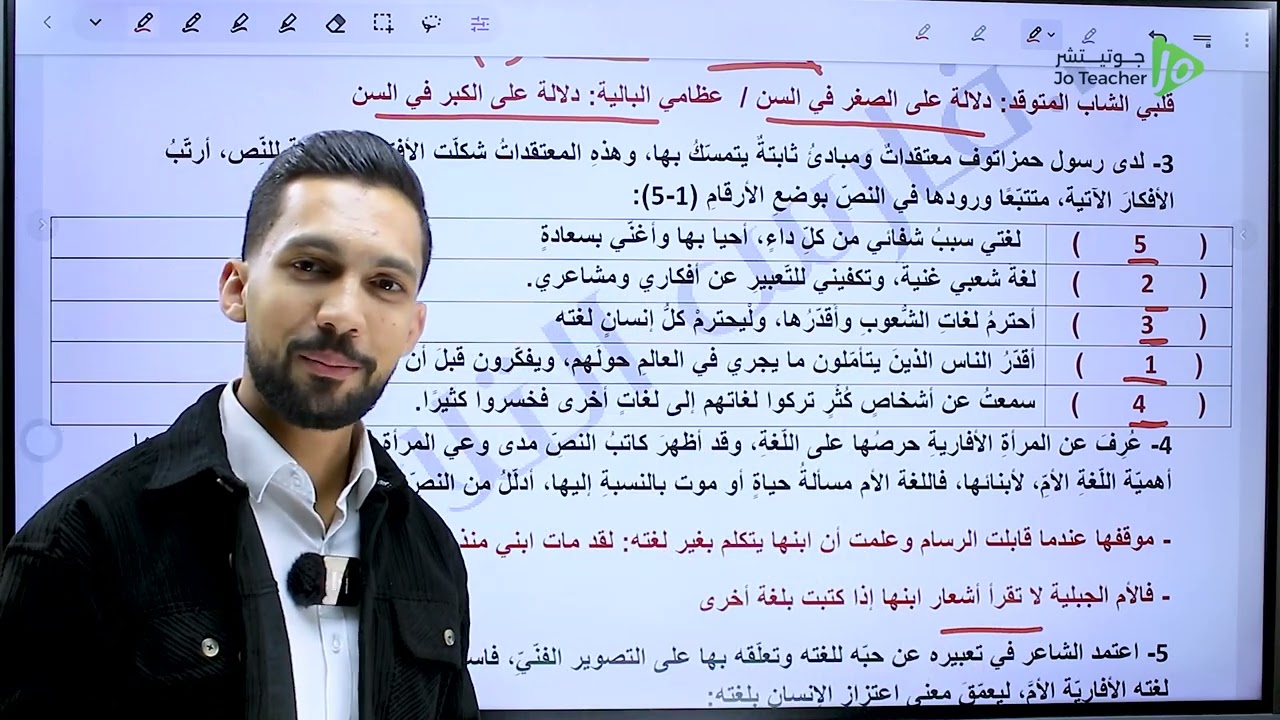 جوتيتشر
Jo Teacher
قلبي الشاب المتوقد: دلالة على الصغر في السن / عظامي البالية: دلالة على الكبر في السن
3- لدى رسول حمزاتوف معتقداتٌ ومبادئُ ثابتةٌ يتمسكُ بها، وهذهِ المعتقداتُ شكلّت للنّص، أرتّبُ
الأفكارَ الآتية، متتبّعًا ورودها في النصّ بوضعِ الأرقامِ (1-5):
( 5 ) لغتي سببُ شفائي من كلِّ داءٍ، أحيا بها وأغنّي بسعادةٍ
( 2 ) لغة شعبي غنية، وتكفيني للتّعبيرِ عن أفكاري ومشاعري.
( 3 ) أحترمُ لغاتِ الشُّعوبِ وأقدّرُها، ولْيحترمْ كلُّ إنسانٍ لغته
( 1 ) أقدّرُ الناس الذينَ يتأمّلون ما يجري في العالمِ حولَهم، ويفكّرون قبلَ أن
( 4 ) سمعتُ عن أشخاصٍ كُثْرٍ تركوا لغاتهم إلى لغاتٍ أخرى فخسروا كثيرًا.
4- عُرِفَ عن المرأةِ الأفاريةِ حرصُها على اللّغةِ، وقد أظهرَ كاتبُ النصّ مدى وعي المرأة
أهميّة اللّغةِ الأمّ، لأبنائها، فاللغة الأم مسألةُ حياةٍ أو موت بالنسبةِ إليها، أدلّلُ من النصّ
- موقفها عندما قابلت الرسام وعلمت أن ابنها يتكلم بغير لغته: لقد مات ابني منذ
- فالأم الجبلية لا تقرأ أشعار ابنها إذا كتبت بلغة أخرى
5- اعتمد الشاعر في تعبيره عن حبّه للغته وتعلّقه بها على التصوير الفنّيّ،
لغته الأفاريّة الأمّ، ليعمّقَ معنى اعتزاز الإنسان بلغته: